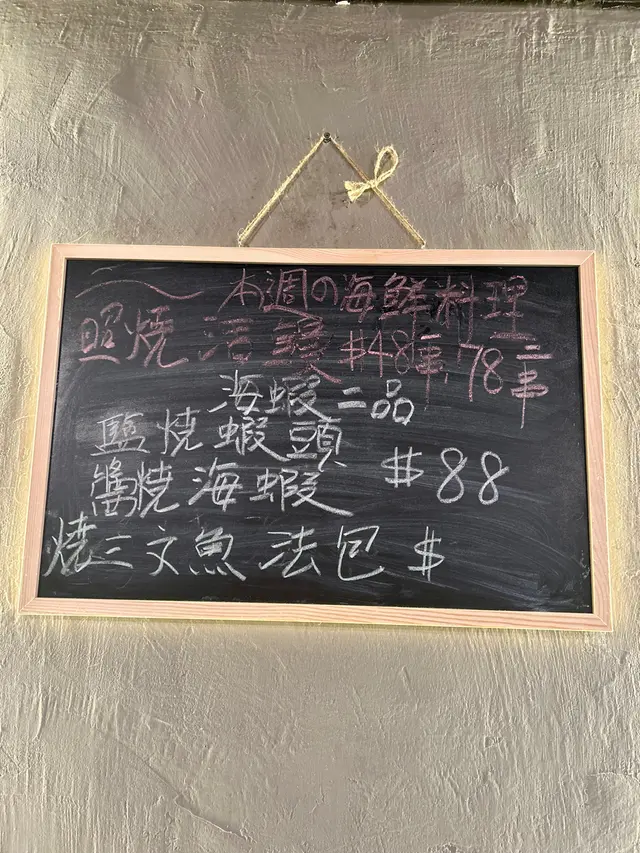 本週の海鮮料理
照燒活鰻 $48串,78二串
海蝦二品
鹽燒蝦頭
醬燒海蝦 $88
燒三文魚法包 $